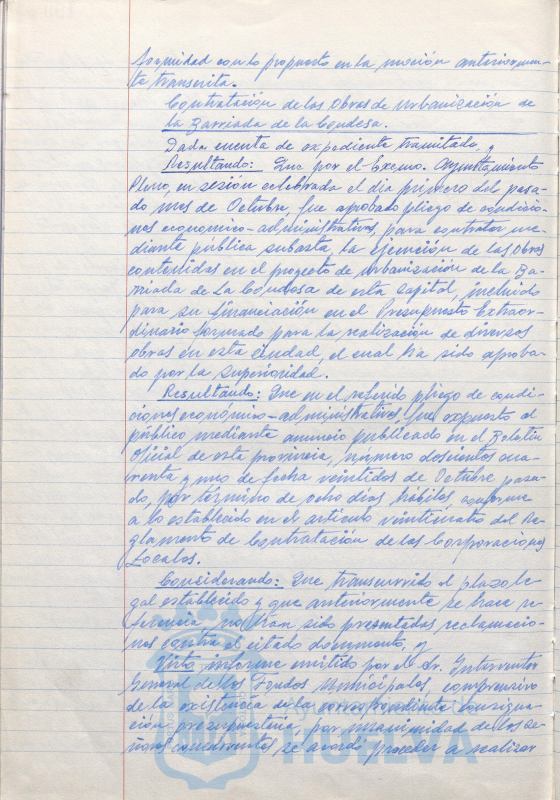 formidad con lo propuesto en la moción anteriormen-
te transcrita.
Contratación de las Obras de Urbanización de
la Barriada de la Condesa.
Dada cuenta de expediente tramitado, y
Resultando: Que por el Excmo. Ayuntamiento
Pleno, en sesión celebrada el día primero del pasa-
do mes de Octubre fue aprobado pliego de condicio-
nes económico-administrativas, para contratar me-
diante pública subasta, la ejecución de las Obras
contenidas en el proyecto de Urbanización de la Ba-
rriada de La Condesa de esta Capital, incluido
para su financiación en el Presupuesto Extraor-
dinario formado para la realización de diversas
obras en esta Ciudad, el cual ha sido aproba-
do por la Superioridad.
Resultando: Que en el referido pliego de condi-
ciones económico-administrativas, fue expuesto al
público mediante anuncio publicado en el Boletín
Oficial de esta provincia, número doscientos cua-
renta y uno de fecha veintidos de Octubre pasa-
do, por término de ocho días hábiles, conforme
a lo establecido en el artículo veinticuatro del Re-
glamento de Contratación de las Corporaciones
Locales.
Considerando: Que transcurrido el plazo le-
gal establecido y que anteriormente se hace re-
ferencia no han sido presentadas reclamacio-
nes contra el citado documento, y
Visto informe emitido por el Sr. Interventor
General de los Fondos Municipales, comprensivo
de la existencia de la correspondiente consigna-
ción presupuestaria, por unanimidad de los se-
ñores concurrentes se acordó proceder a realizar
HUELVA